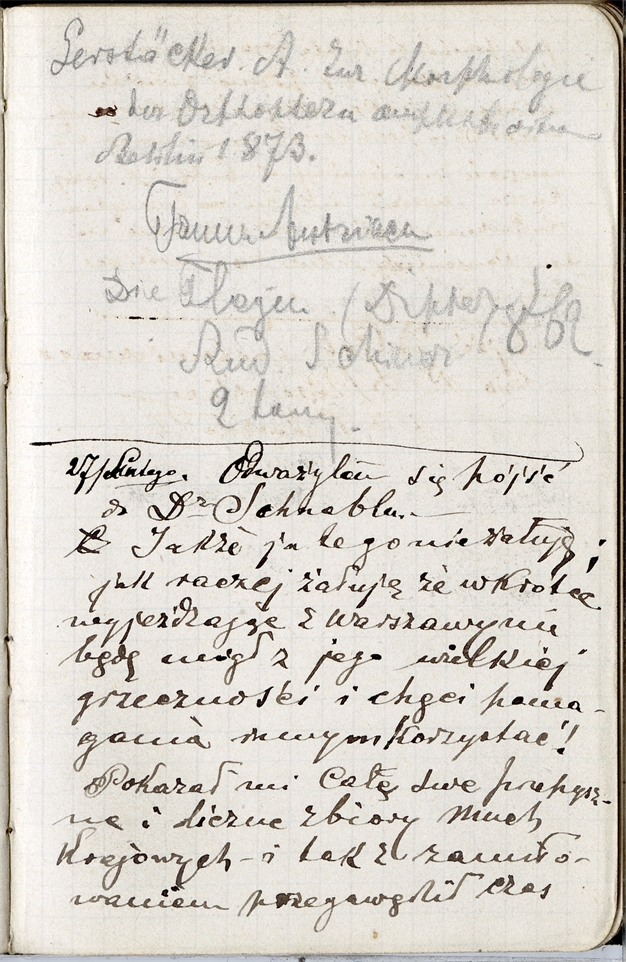 Gerstäcker. A. Zur Morphologie
der Orthoptera amphibiotica
Berlin 1873.
Die Fliegen (Dipter 1862
Rud Schiner
2 tomy.
27/Lutego. Odważyłem się pójść
do Dr Schnabla.
Jakże ja tego nie żałuję,
jak raczej żałuję że wkrótce
wyjeżdżając z Warszawy nie
będę mógł z jego wielkiej
grzeczności i chęci poma-
gania innym korzystać!
Pokazał mi całe swe przepysz-
ne i liczne zbiory Much
Krajowych - i tak z zamiło-
waniem przegawędził czas